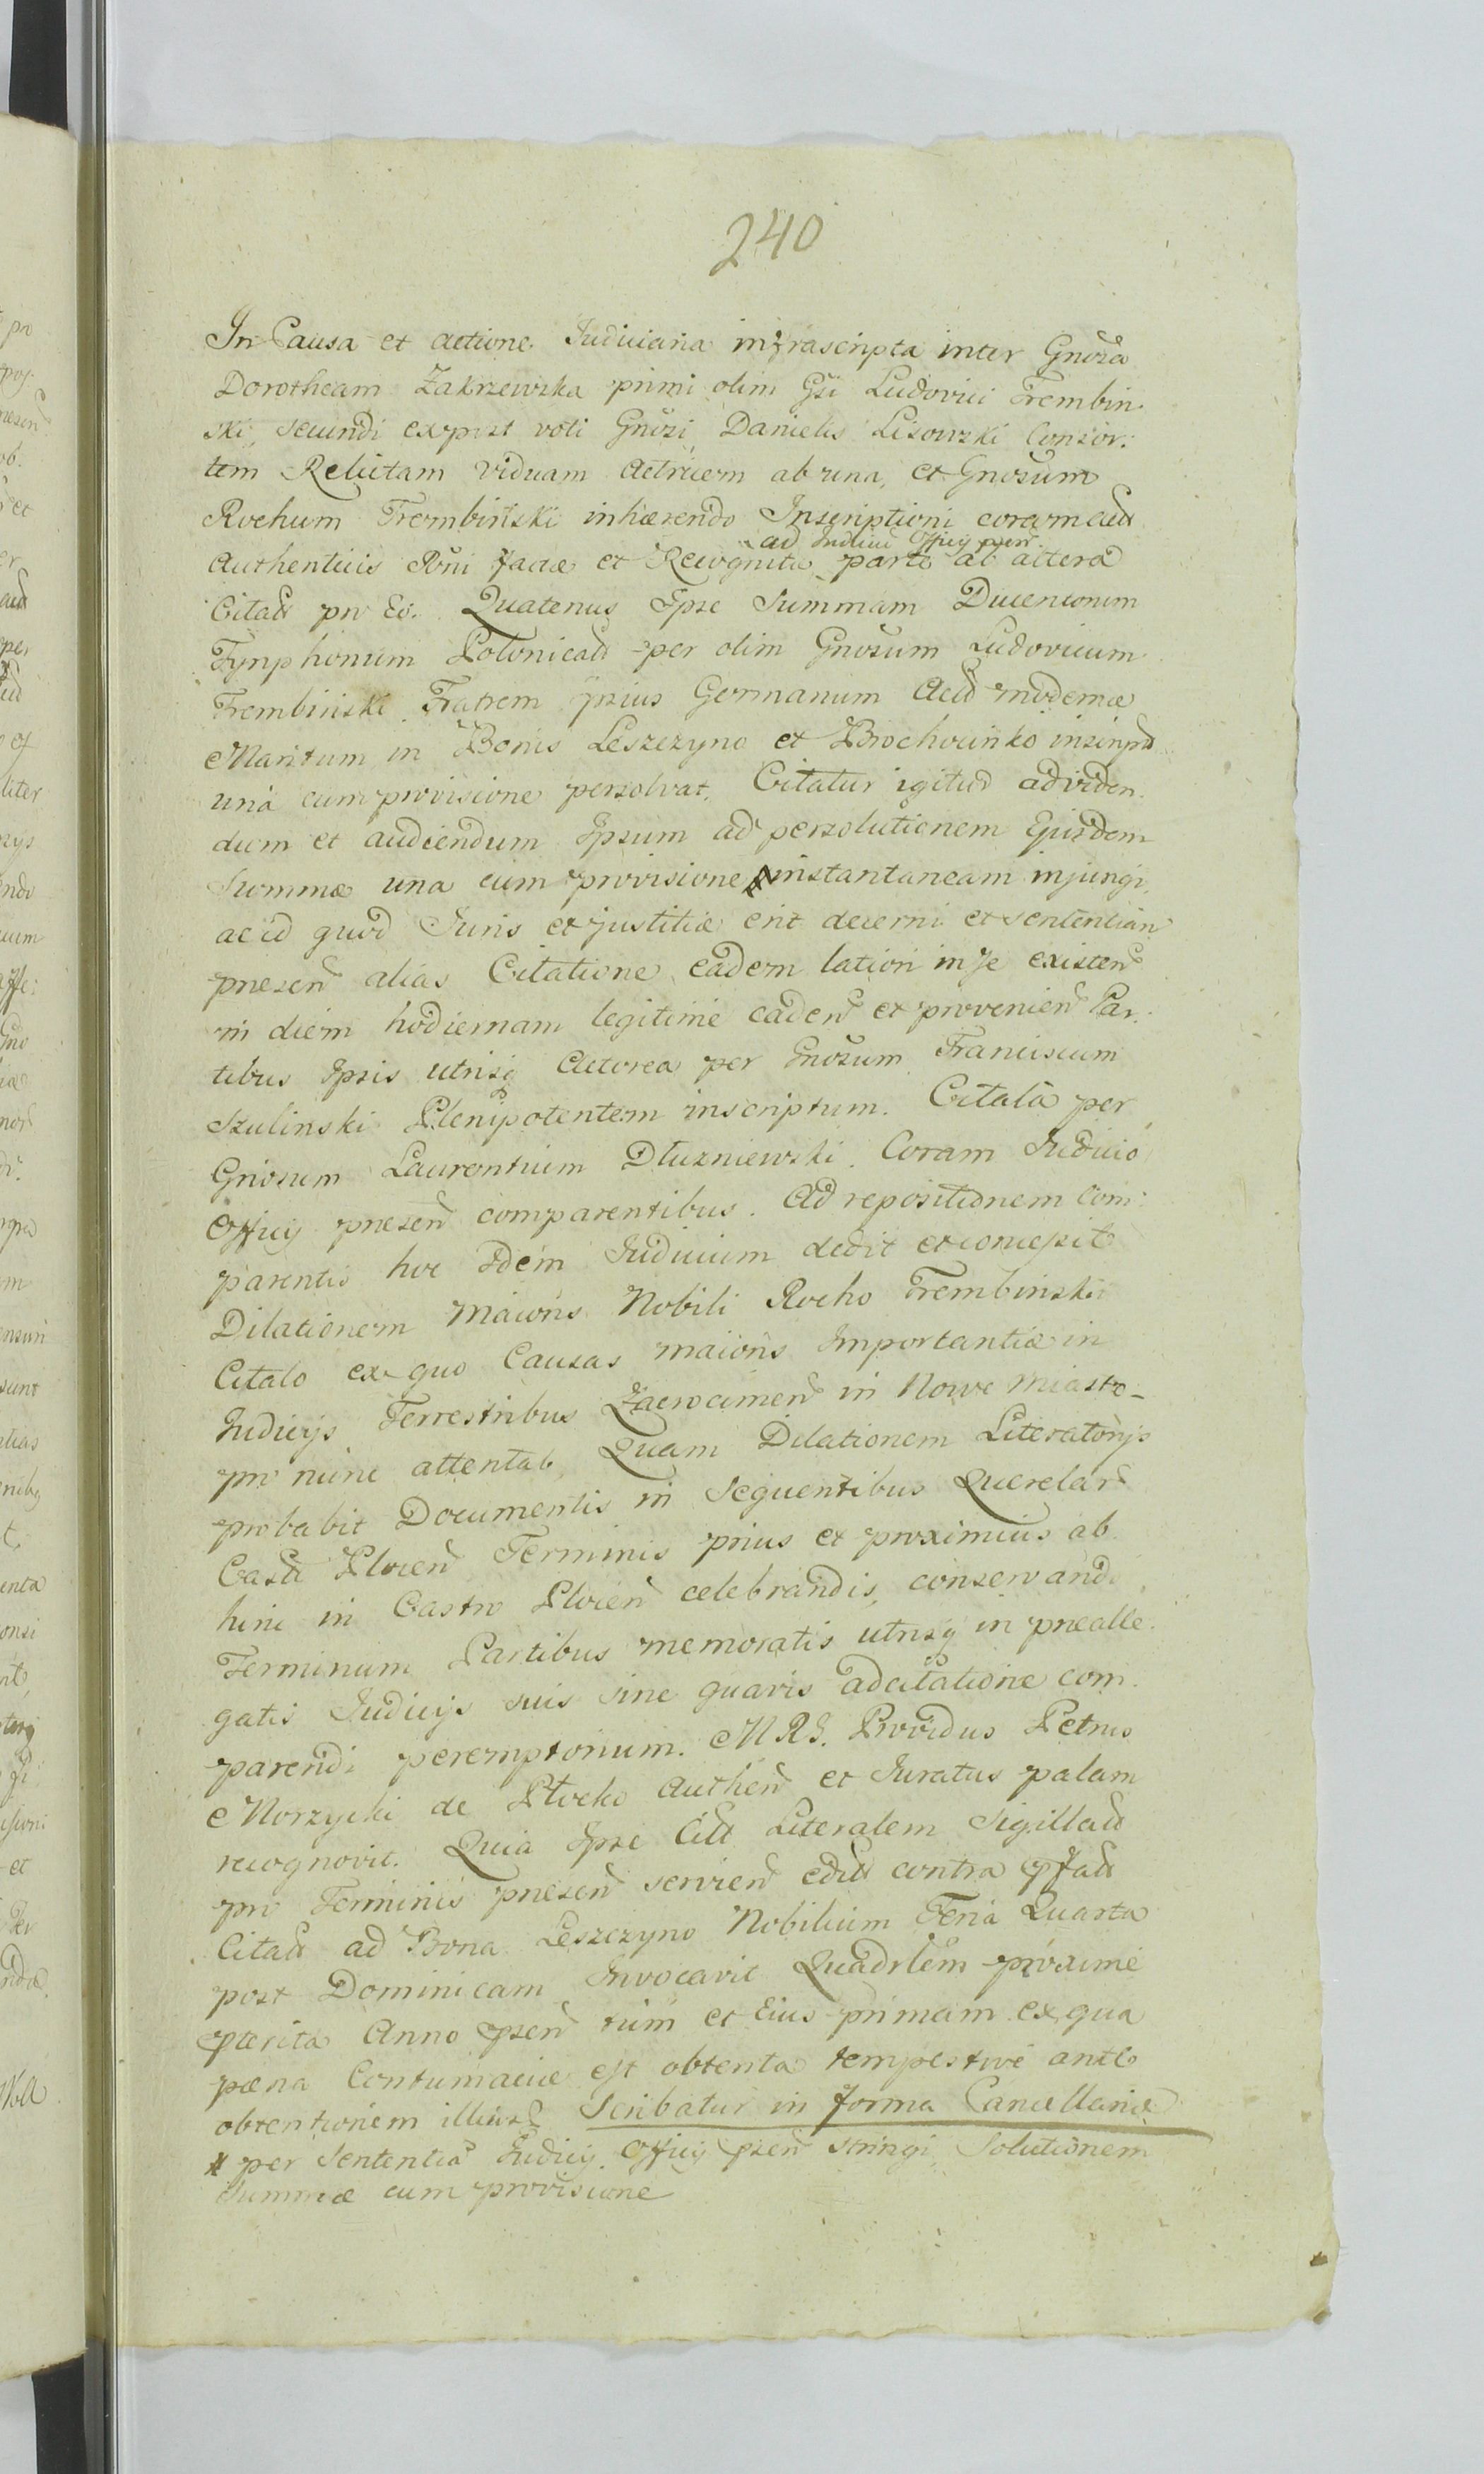 240
In Causa et actione Judiciaria infrascripta inter Gnosa
Dorotheam Zakrzewska primi olim Gsi Ludovici Trembin-
ski, secundi expost voti Gnosi Danielis Lisowski Consor:
tem Relictam viduam Actricem ab una, et Gnosum
Rochum Trembinski inhærendo Inscriptioni coram
ad Judiciu Officij presen
Authenticis Rni factæ et Recognita parte ab altera
Citat pro Eo. Quatenus Ipse Summam Ducentorum
Tynphonum Polonical per olim Gnosum Ludovicum
Trembinski Fratrem ipsius Germanum Act modernæ
Maritum in Bonis Leszczyno et Brochocinko inscript
una cum provisione persolvat, Citatur igitur ad viden-
dum et audiendum Ipsum ad persolutionem Ejusdem
Summæ una cum provisione instantaneam injungi,
ac id quod Juris et justitiæ erit decerni et sententiari
presen alias Citatione eadem latiori in se existen
in diem hodiernam legitime caden et provenien Par:
tibus Ipsis utrisq Actorea per Gnosum Franciscum
Szulinski Plenipotentem inscriptum. Citata per
Gnosum Laurentium Dłuzniewski. Coram Judicio
Officij presen comparentibus. Ad repositionem Com:
parentis hoc Idem Judicium dedit et concessit
Dilationem maioris Nobili Rocho Trembinski
Citato ex quo Causas maioris Importantiæ in
Judicijs Terrestribus Zacrocimen in Nowe Miasto-
pro nunc attentat, Quam Dilationem Literatorijs
probabit Documentis in sequentibus Querelar
Castr Plocen Terminis prius et proximius ab
hinc in Castro Plocen celebrandis, conservand
Terminum Partibus memoratis utrisq in prealle-
gatis Judicijs suis sine quavis adcitatione com-
parendi peremptorium. MRS. Providus Petrus
Morzycki de Plocko Authen et Juratus palam
recognovit. Quia Ipse Citt Literalem Sigillat
pro Terminis presen servien edit contra pfat
Citat ad Bona Leszczyno Nobilium Feria Quarta
post Dominicam Invocavit Quadrlem proxime
pterita Anno psen rium et Eius primam ex qua
pæna Contumaciæ est obtenta tempestive ante
obtentionem illius Scribatur in forma Cancellariæ
per Sententia Judicij Officij psen stringi, Solutionem
Summæ cum provisione